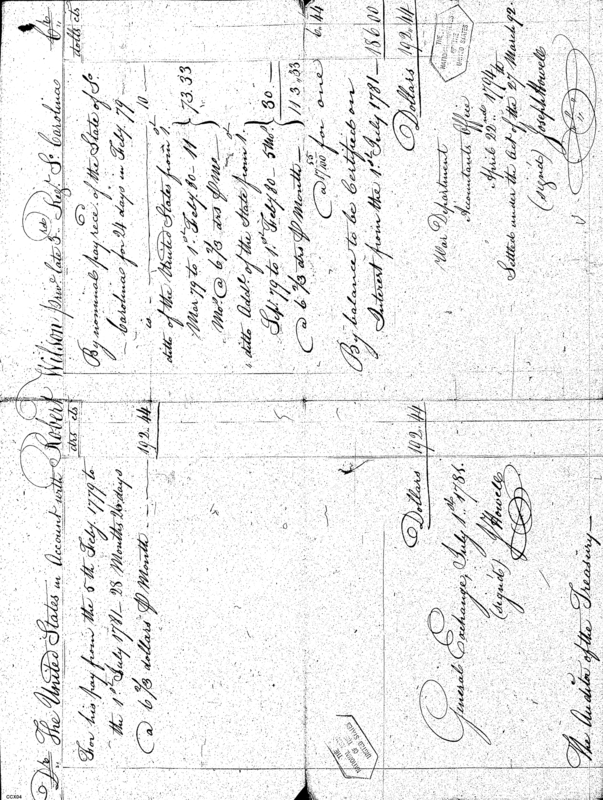 Dr. The United States in Account with Robert Wilson priv. late 3rd Regt So. Carolina Cr.
drs cts
For his pay from the 5th Feby. 1779 to
the 1st July 1781 - 28 Months 26 days
@ 6 2/3 dollars p Month - - - 192.44
Dollars 192.44
General Exchange, July 1st 1781.
(signed) J Howell
The Auditor of the Treasury
dolls cts
By nominal pay rece. of the State of So.
Carolina for 24 days in Feby. 79
is - 10 -
ditto of the United States from 1.
Mar 79 to 1st Feby 80 - 11
Mos. @ 6 2/3 drs p Mo } 73.33
ditto Addl. of the State from 1.
Sep. 79 to 1st Feby 80 - 5 Mos.
@ 6 2/3 drs p Month } 30
113.33
@ 17.60 for one 6.44
By balance to be Certified on
Interest from the 1st July 1781 - 186.00
Dollars 192.44
War Department
Accountants Office
April 22nd 1794
Settled under the Act of the 27th March 92
(signed) Joseph Howell
THE NATIONAL ARCHIVES OF THE UNITED STATES
THE NATIONAL ARCHIVES OF THE UNITED STATES
CCX04